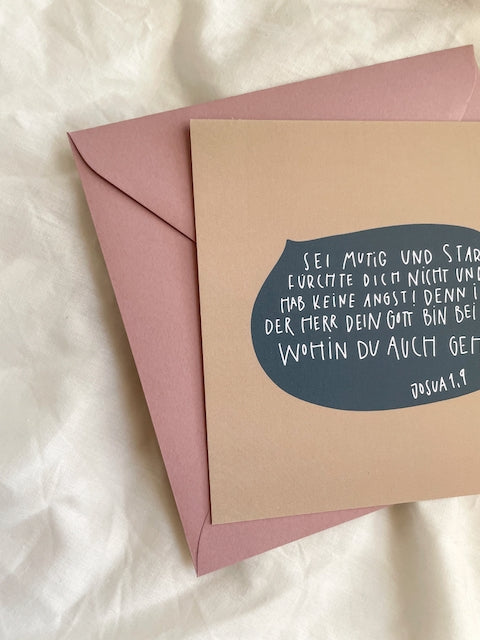 SEI MUTIG UND STAR
FÜRCHTE DICH NICHT UND
HAB KEINE ANGST! DENN I
DER HERR DEIN GOTT BIN BEI
WOHIN DU AUCH GEH
JOSUA 1,9